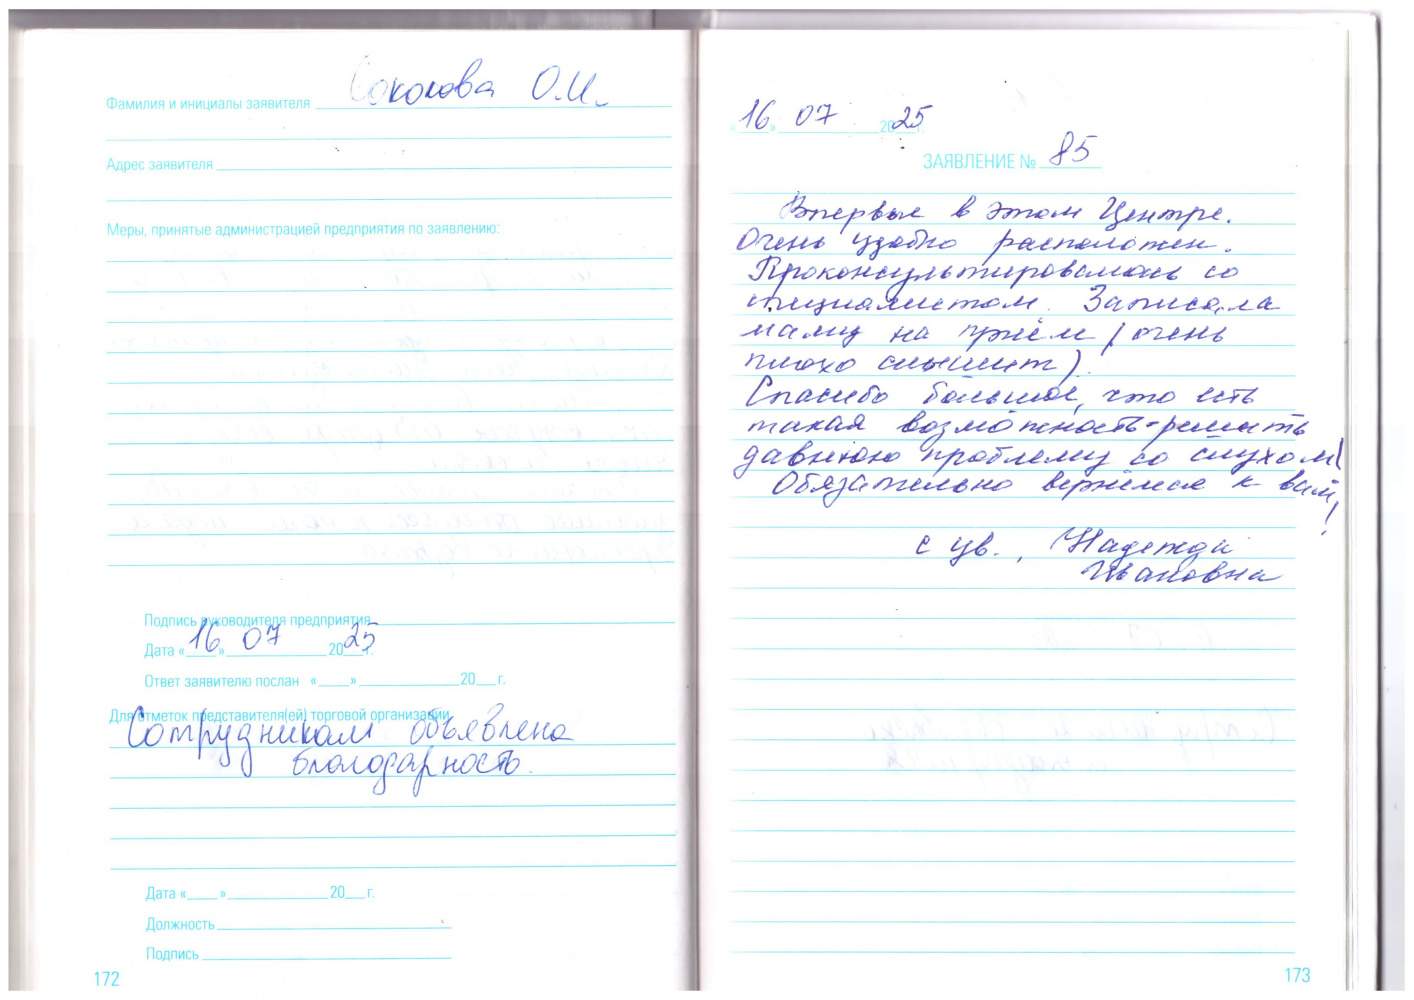 Фамилия и инициалы заявителя Соколова О.И.
Адрес заявителя
Меры, принятые администрацией предприятия по заявлению:
Подпись руководителя предприятия
Дата «16» 07 2025 г.
Ответ заявителю послан «___» 20__г.
Для отметок представителя(ей) торговой организации
Сотрудникам объявлена
благодарность.
Дата «___» 20__г.
Должность
Подпись
172
«16» 07 2025 г.
ЗАЯВЛЕНИЕ № 85
Впервые в этом Центре.
Очень удобно расположен.
Проконсультировалась со
специалистом. Записала
маму на приём (очень
плохо слышит).
Спасибо большое, что есть
такая возможность-решить
давнюю проблему со слухом!
Обязательно вернёмся к вам!
с ув., Надежда
Ивановна
173